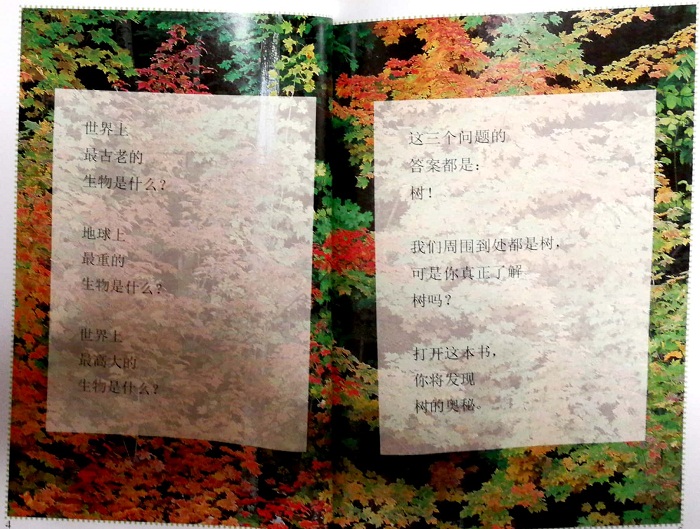 世界上
最古老的
生物是什么？
地球上
最重的
生物是什么？
世界上
最高大的
生物是什么？
4
这三个问题的
答案都是：
树！
我们周围到处都是树，
可是你真正了解
树吗？
打开这本书，
你将发现
树的奥秘。